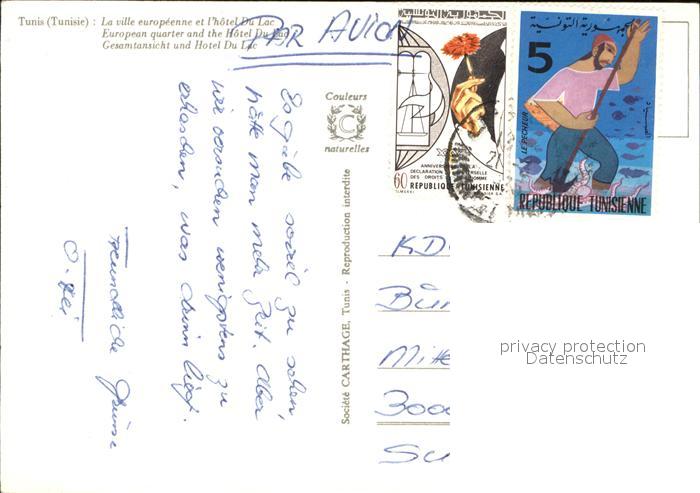 Tunis (Tunisie) : La ville européenne et l'hôtel Du Lac
European quarter and the Hôtel Du Lac
Gesamtansicht und Hotel Du Lac
PAR AVION
Es gäbe soviel zu sehen,
hätte man mehr Zeit. Aber
wir versuchen wenigstens zu
erhaschen, was drinn liegt.
Freundliche Grüsse
Couleurs
C
naturelles
Société CARTHAGE, Tunis - Reproduction interdite
الجمهورية التونسية
60
ANNIVERSAIRE DE LA
DECLARATION UNIVERSELLE
DES DROITS DE L'HOMME
REPUBLIQUE TUNISIENNE
الجمهورية التونسية
5
LE PECHEUR
REPUBLIQUE TUNISIENNE
KD
Bün
Mitt
300
Su
privacy protection
Datenschutz